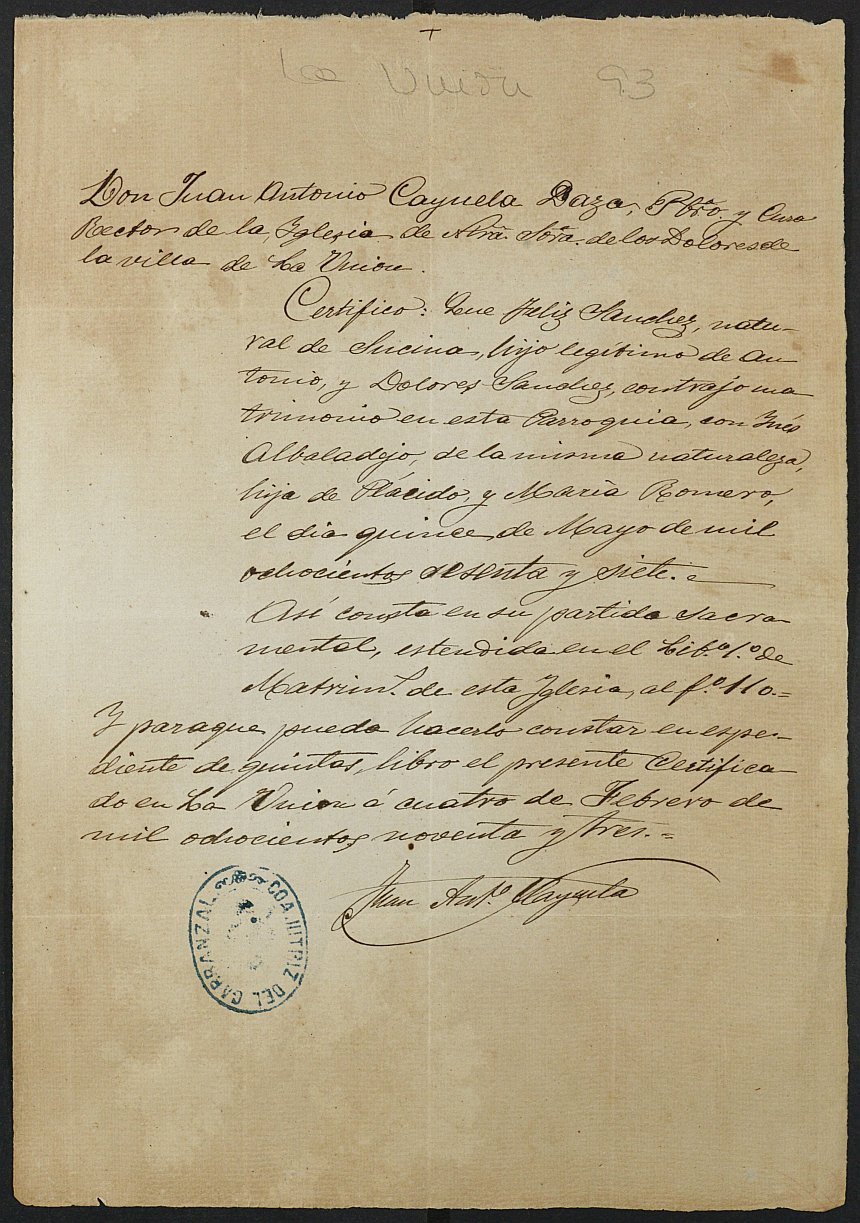 +
La Unión 93
Don Juan Antonio Cayuela Daza, Pbro. y Cura
Rector de la Iglesia de Ntra. Sra. de los Dolores de
la villa de La Union.
Certifico: Que Feliz Sanchez, natu-
ral de Sucina, hijo legitimo de An
tonio, y Dolores Sanchez, contrajo ma
trimonio en esta Parroquia, con Inés
Albaladejo, de la misma naturaleza,
hija de Plácido, y Maria Romero,
el dia quince de Mayo de mil
ochocientos sesenta y siete.=
Así consta en su partida sacra
mental, estendida en el Lib.o 1.o de
Matrim.l de esta Iglesia, al f.o 110.=
Y para que pueda hacerlo constar en espe-
diente de quintas, libro el presente Certifica
do en La Union á cuatro de Febrero de
mil ochocientos noventa y tres.=
Juan Ant.o Cayuela
COADJUTRIZ DEL GARRANZAL